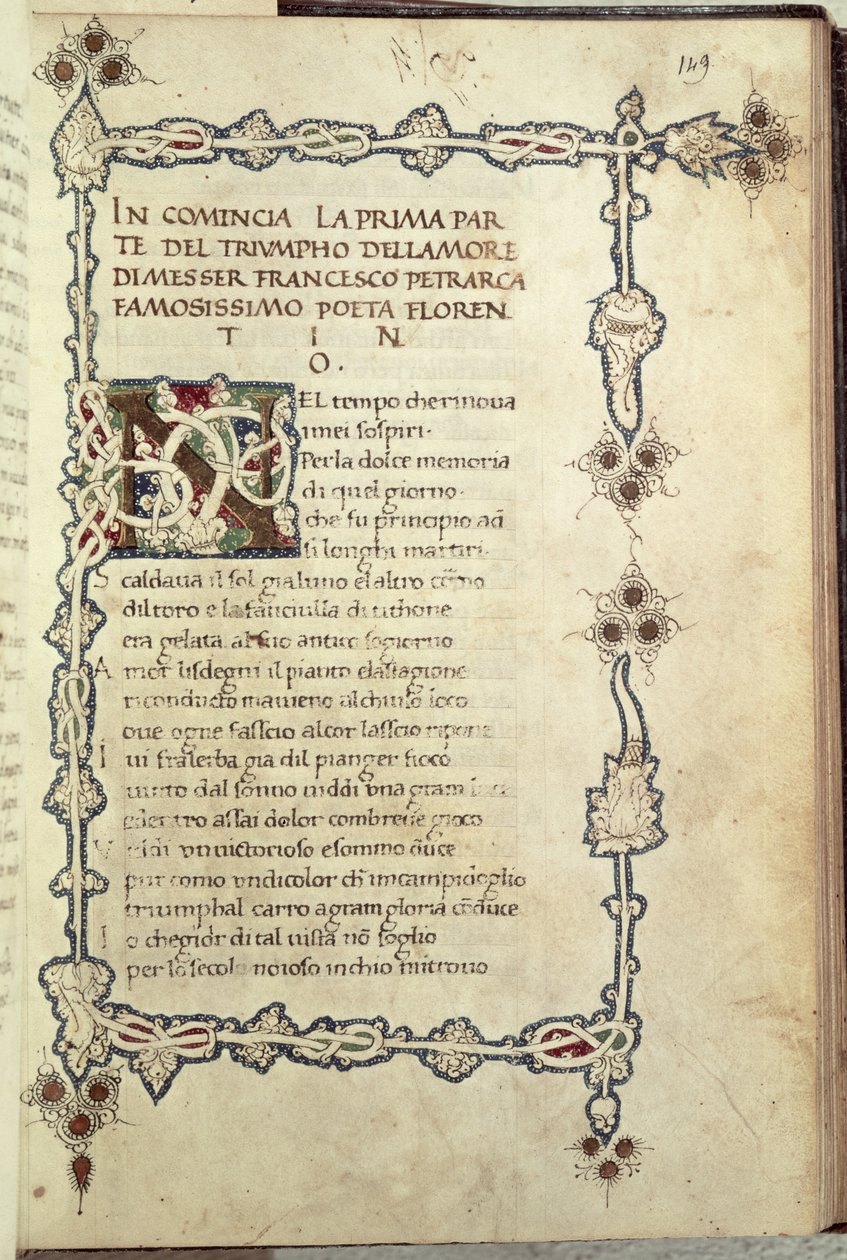 149
IN COMINCIA LA PRIMA PAR
TE DEL TRIVMPHO DELLAMORE
DI MESSER FRANCESCO PETRARCA
FAMOSISSIMO POETA FLOREN
T I N
O.
NEL tempo che rinoua
i miei sospiri.
Per la dolce memoria
di quel giorno.
che fu principio ad
si longhi martiri.
Scaldaua il sol gia luno elaltro corno
dil toro e la fanciulla di tithone
era gelata al suo antico sogiorno
Amor lisdegni il pianto elastagione
riconducto maueno alchiuso loco
oue ogne fasscio alcor lasscio ripone
Iui fralerba gia dil pianger fioco
uinto dal sonno uiddi una gram
edentro assai dolor combreue gioco
Vidi un uictorioso esommo duce
pur como un di color ch imcampidoglio
triumphal carro a gram gloria cōduce
Io che gioir di tal uista nō soglio
per lo secolo noioso in chio mitrouo